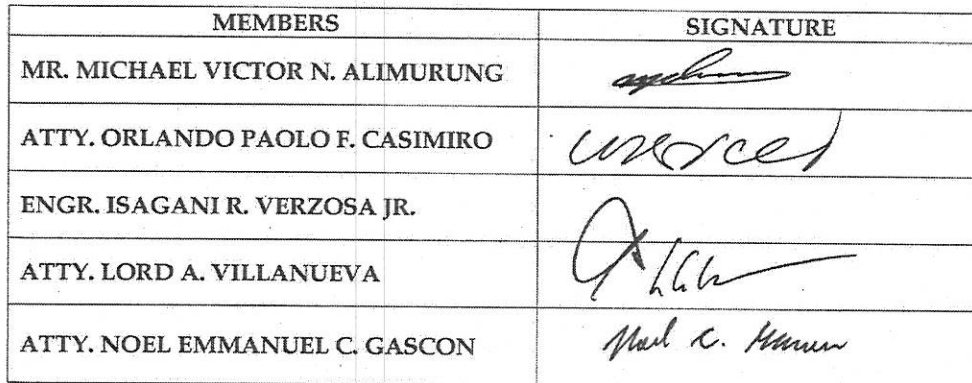 MEMBERS SIGNATURE
MR. MICHAEL VICTOR N. ALIMURUNG
ATTY. ORLANDO PAOLO F. CASIMIRO
ENGR. ISAGANI R. VERZOSA JR.
ATTY. LORD A. VILLANUEVA
ATTY. NOEL EMMANUEL C. GASCON Noel C.